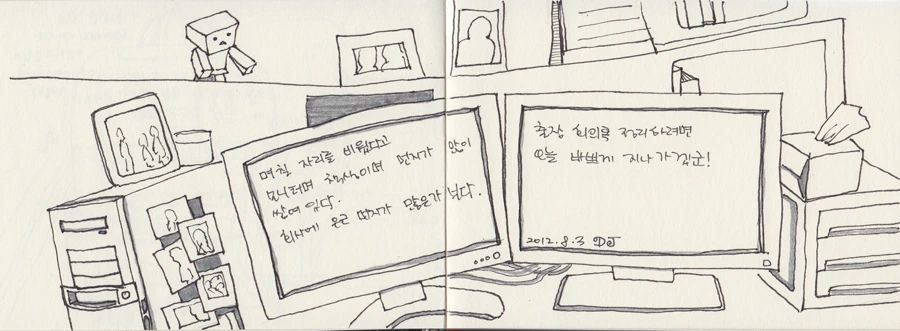 며칠 자리를 비웠다고
모니터며 책상이며 먼지가 많이
쌓여 있다.
회사에 은근 먼지가 많은가 보다.
출장 회의록 정리하려면
오늘 바쁘게 지나가겠군!
2012.8.3 DJ